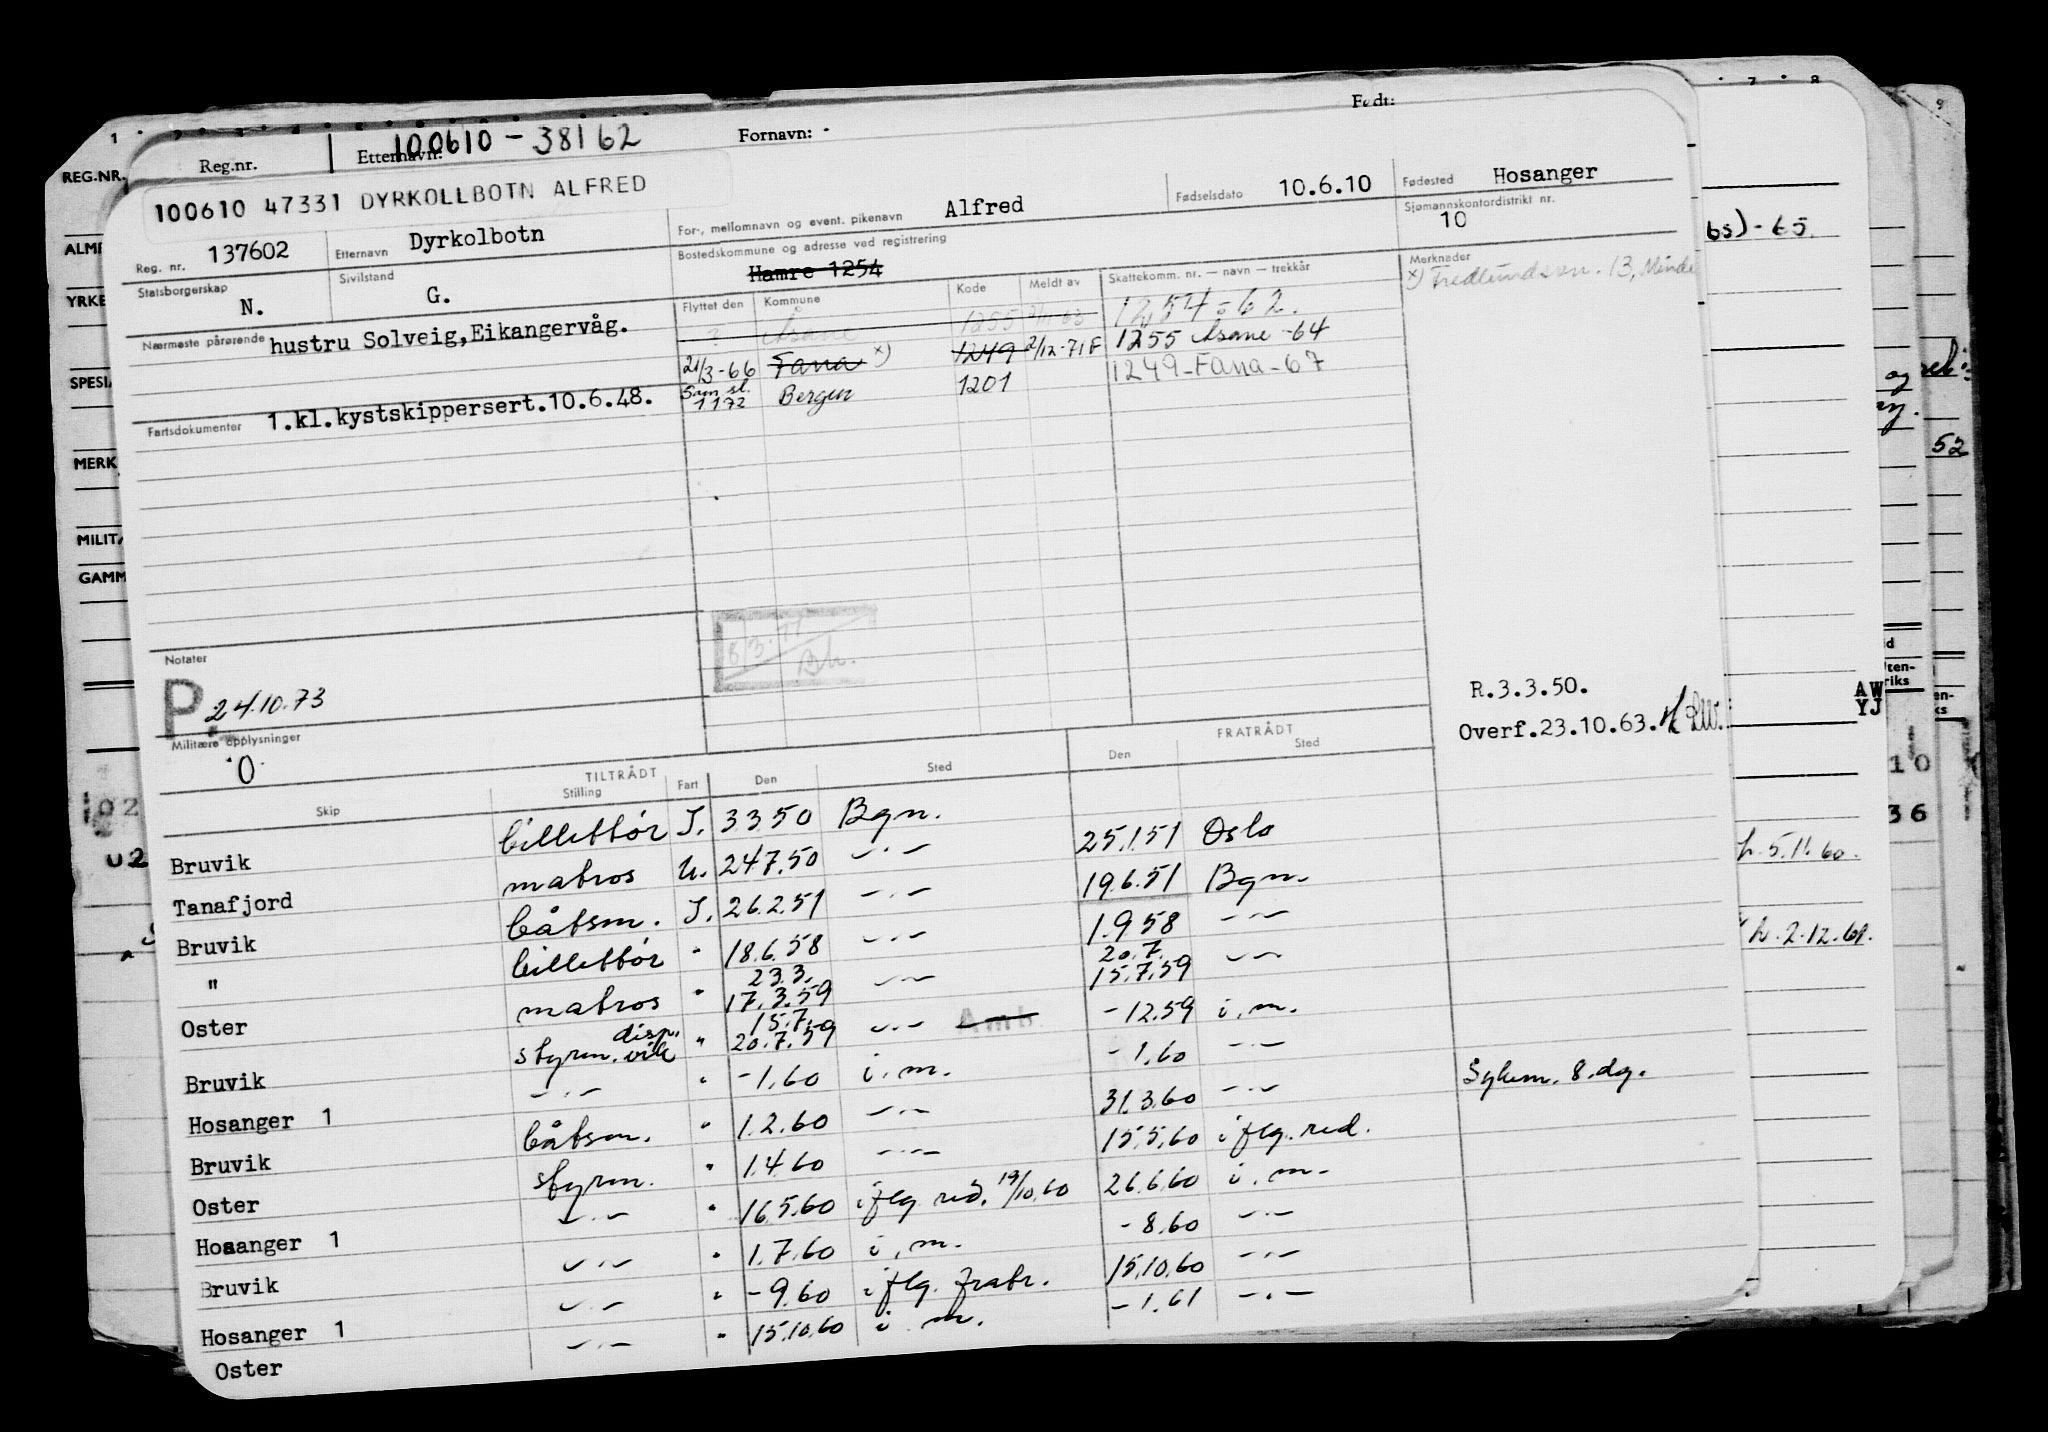 Reg.nr. Etternavn: 100610 - 38162 Fornavn: Født:
100610 47331 DYRKOLLBOTN ALFRED
Reg. nr. 137602 Etternavn Dyrkolbotn For-, mellomnavn og event. pikenavn Alfred Fødselsdato 10.6.10 Fødested Hosanger
Statsborgerskap N. Sivilstand G. Bostedskommune og adresse ved registrering Hamre 1254 Sjømannskontordistrikt nr. 10
Nærmeste pårørende hustru Solveig,Eikangervåg.
Flyttet den Kommune Kode Meldt av Skattekomm. nr. — navn — trekkår Merknader
? Åsane 1255 1254-62. x) Fredlundsvn. 13, Minde
21/3-66 Fana x) 1249 2/12-71F 1255 Åsane -64
Sam sl. 1 1 72 Bergen 1201 1249-Fana-67
Fartsdokumenter 1.kl.kystskippersert.10.6.48.
Notater
P. 24.10.73
R.3.3.50.
Overf.23.10.63.
Militære opplysninger
0
TILTRÅDT FRATRÅDT
Skip Stilling Fart Den Sted Den Sted
Bruvik billettør I. 3 3 50 Bgn. 25.1.51 Oslo
Tanafjord matros U. 24.7.50 —·— 19.6.51 Bgn.
Bruvik båtsm. I. 26.2.51 —·— 1.9 58 —·—
" billettør " 18.6.58 —·— 20.7. 15.7.59 —·—
Oster matros " 23.3. 17.3.59 —·— -12.59 i.m.
Bruvik styrm. disp. vik " 15.7. 20.7.59 —·— -1.60 —·—
Hosanger 1 —·— " -1.60 i.m. 31.3.60 —·— Sykem. 8.dg.
Bruvik båtsm. " 1.2.60 —·— 15.5.60 iflg. red.
Oster styrm. " 1.4.60 —·— 26.6.60 i.m.
Hosanger 1 —·— " 16.5.60 iflg. red. 19/10.60 -8.60 —·—
Bruvik —·— " 1.7.60 i.m. 15.10.60 —·—
Hosanger 1 —·— " -9.60 iflg. fratr. -1.61 —·—
Oster —·— " 15.10.60 i m.
REG.NR.
YRKE
SPESI
MERK
MILIT
GAMM
-65.
og
52
AW
YJ
10
36
02
5.11.60.
2.12.61.